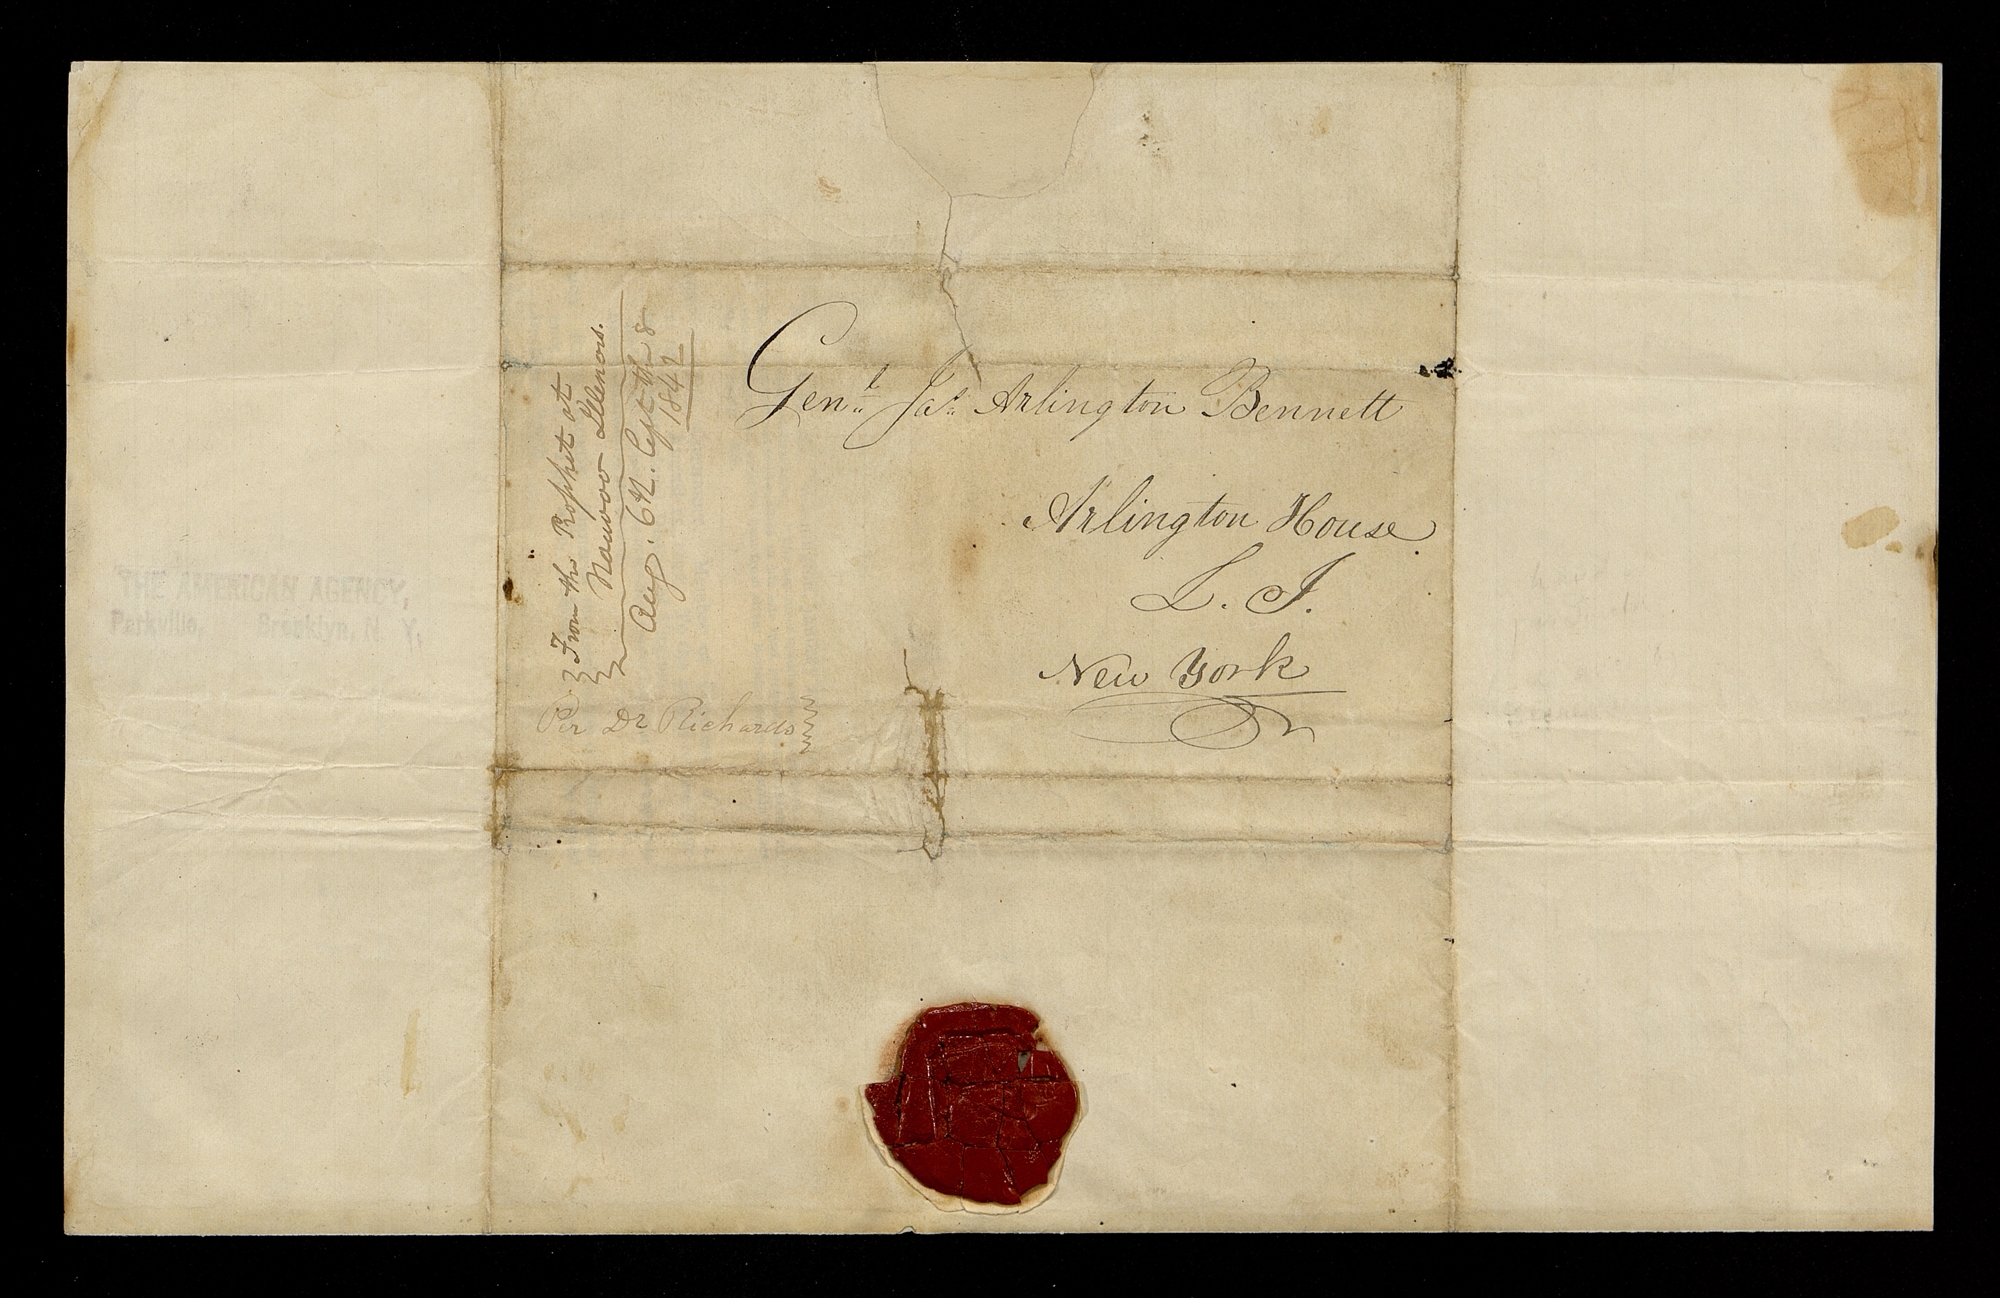 Genl Jas Arlington Bennett
Arlington House
L. I.
New York
From the Prophet at
Nauvoo Illenois.
1842
Per Dr Richards
THE AMERICAN AGENCY,
Parkville, Brooklyn, N Y,